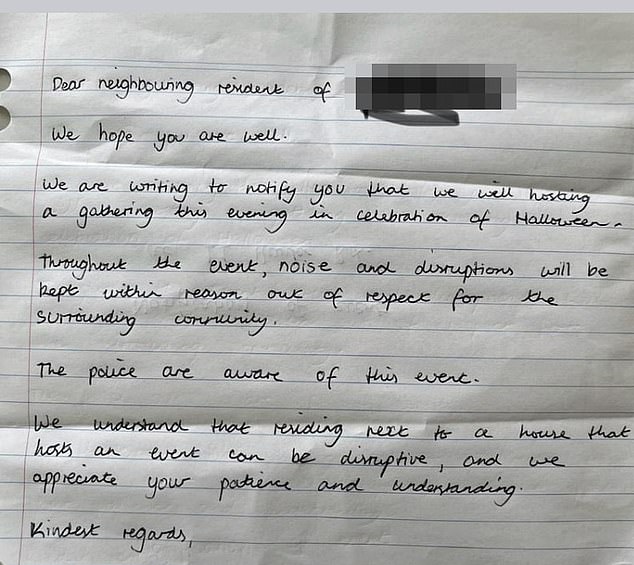 Dear neighbouring resident of
We hope you are well.
We are writing to notify you that we will hosting
a gathering this evening in celebration of Halloween.
Throughout the event, noise and disruptions will be
kept within reason out of respect for the
surrounding community.
The police are aware of this event.
We understand that residing next to a house that
hosts an event can be disruptive, and we
appreciate your patience and understanding.
Kindest regards,